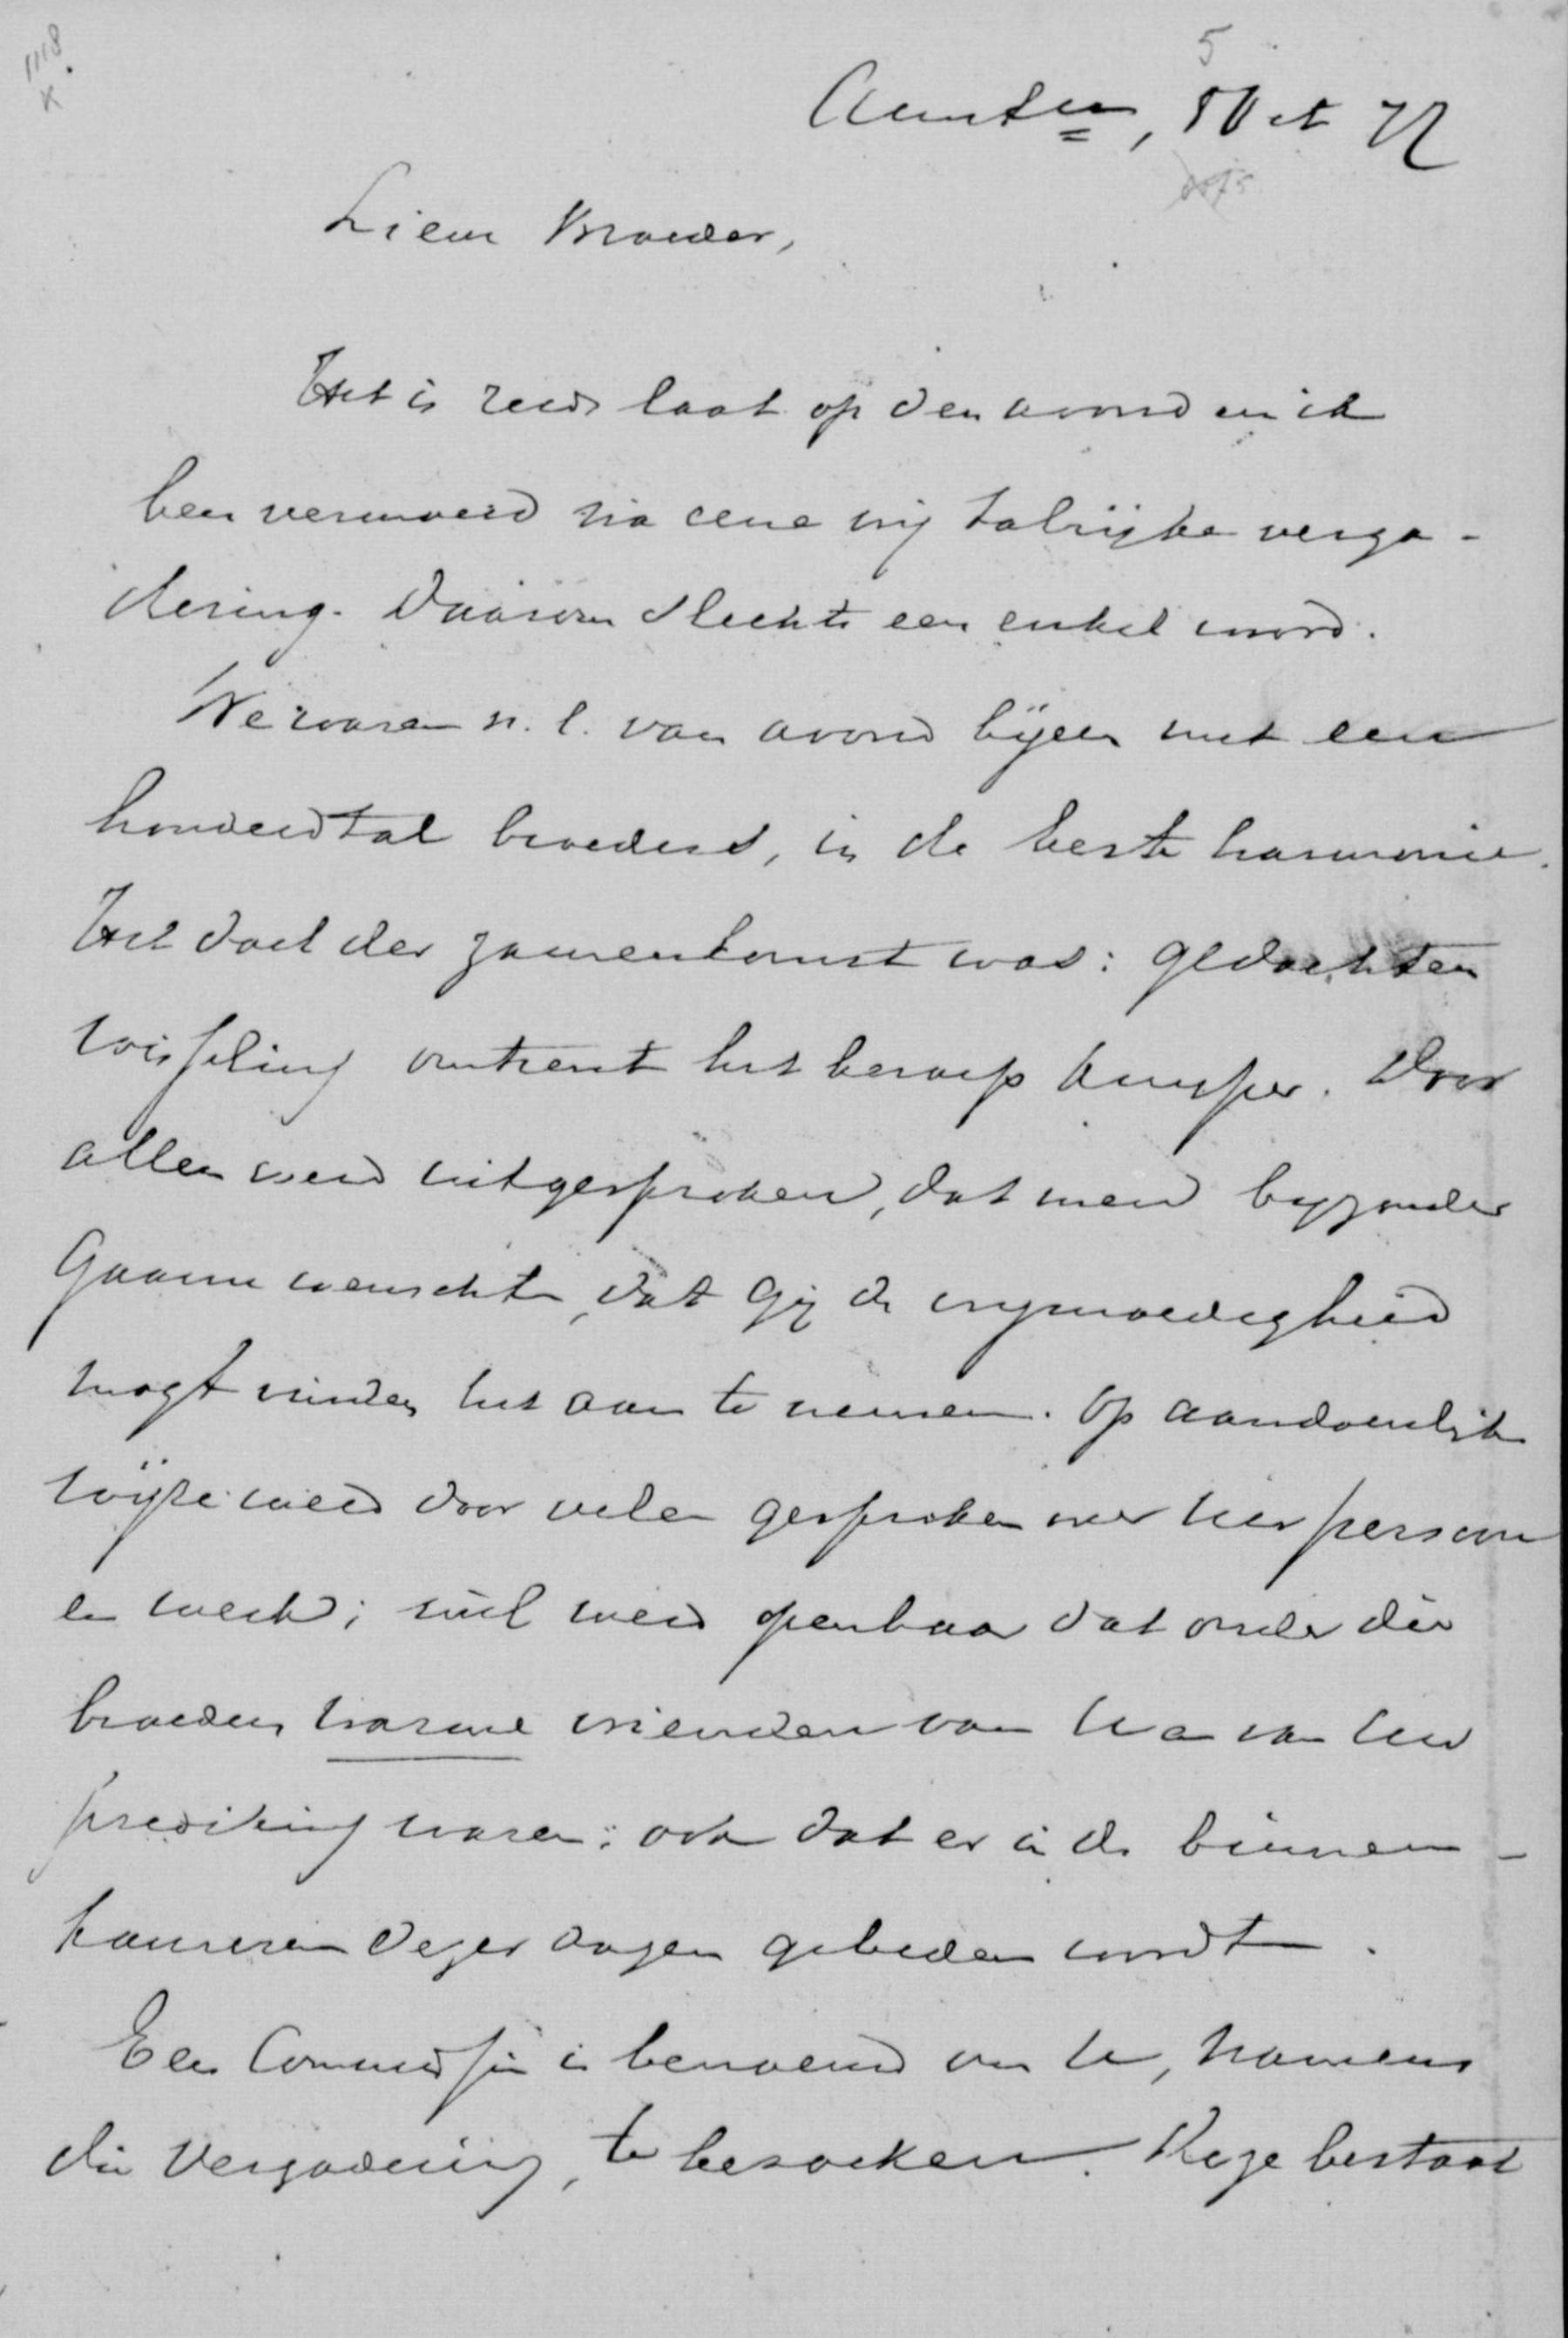 1118
K.
5
Amstm, 5 Oct 77
Lieve Broeder,
Het is reeds laat op den avond en ik
ben vermoeid na eene vrij talrijke verga-
dering. Daarom slechts een enkel woord.
We waren n.l. van avond bijeen met een
honderdtal broeders, in de beste harmonie.
Het doel der zamenkomst was: gedachten
wisseling omtrent het beroep Kuyper. Door
allen werd uitgesproken, dat men byzonder
gaarne wenschte, dat Gij de vrijmoedigheid
mogt vinden het aan te nemen. Op aandoenlijke
wijze werd door velen gesproken over Uw persoon
en werk; veel werd openbaar dat onder die
broeders warme vrienden van U en van Uw
prediking waren; ook dat er in de binnen-
kameren dezer dagen gebeden wordt.
Een Commissie is benoemd om U, namens
die Vergadering, te bezoeken. Deze bestaat